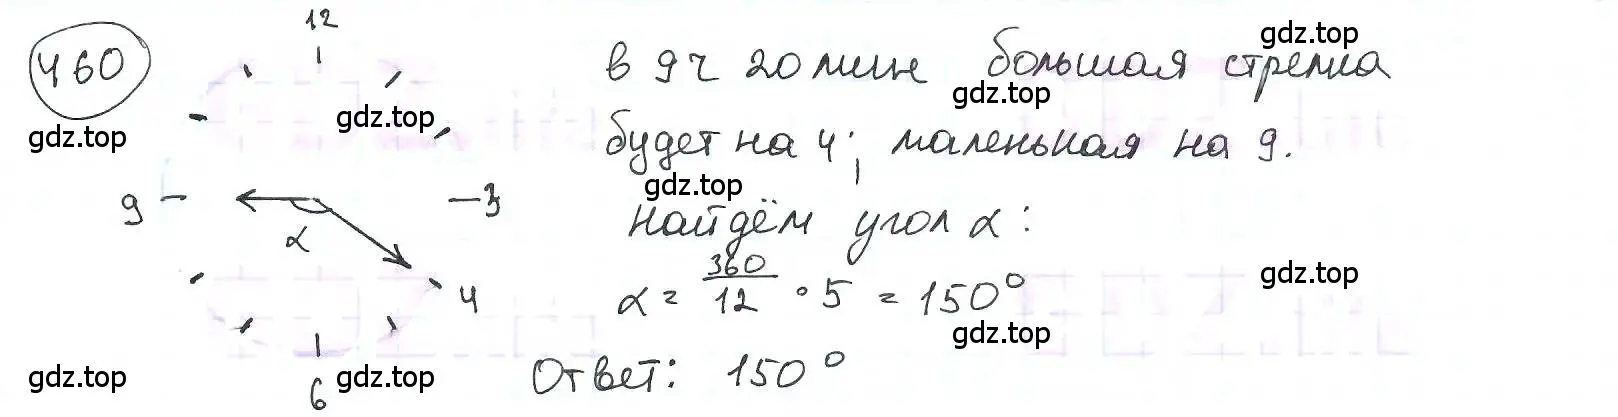 460
12
9
3
α
4
6
в 9 ч 20 мин большая стрелка
будет на 4; маленькая на 9.
Найдём угол α:
α = 360/12 · 5 = 150°
Ответ: 150°
gdz.top
gdz.top
gdz.top
gdz.top
gdz.top
gdz.top
gdz.top
gdz.top
gdz.top